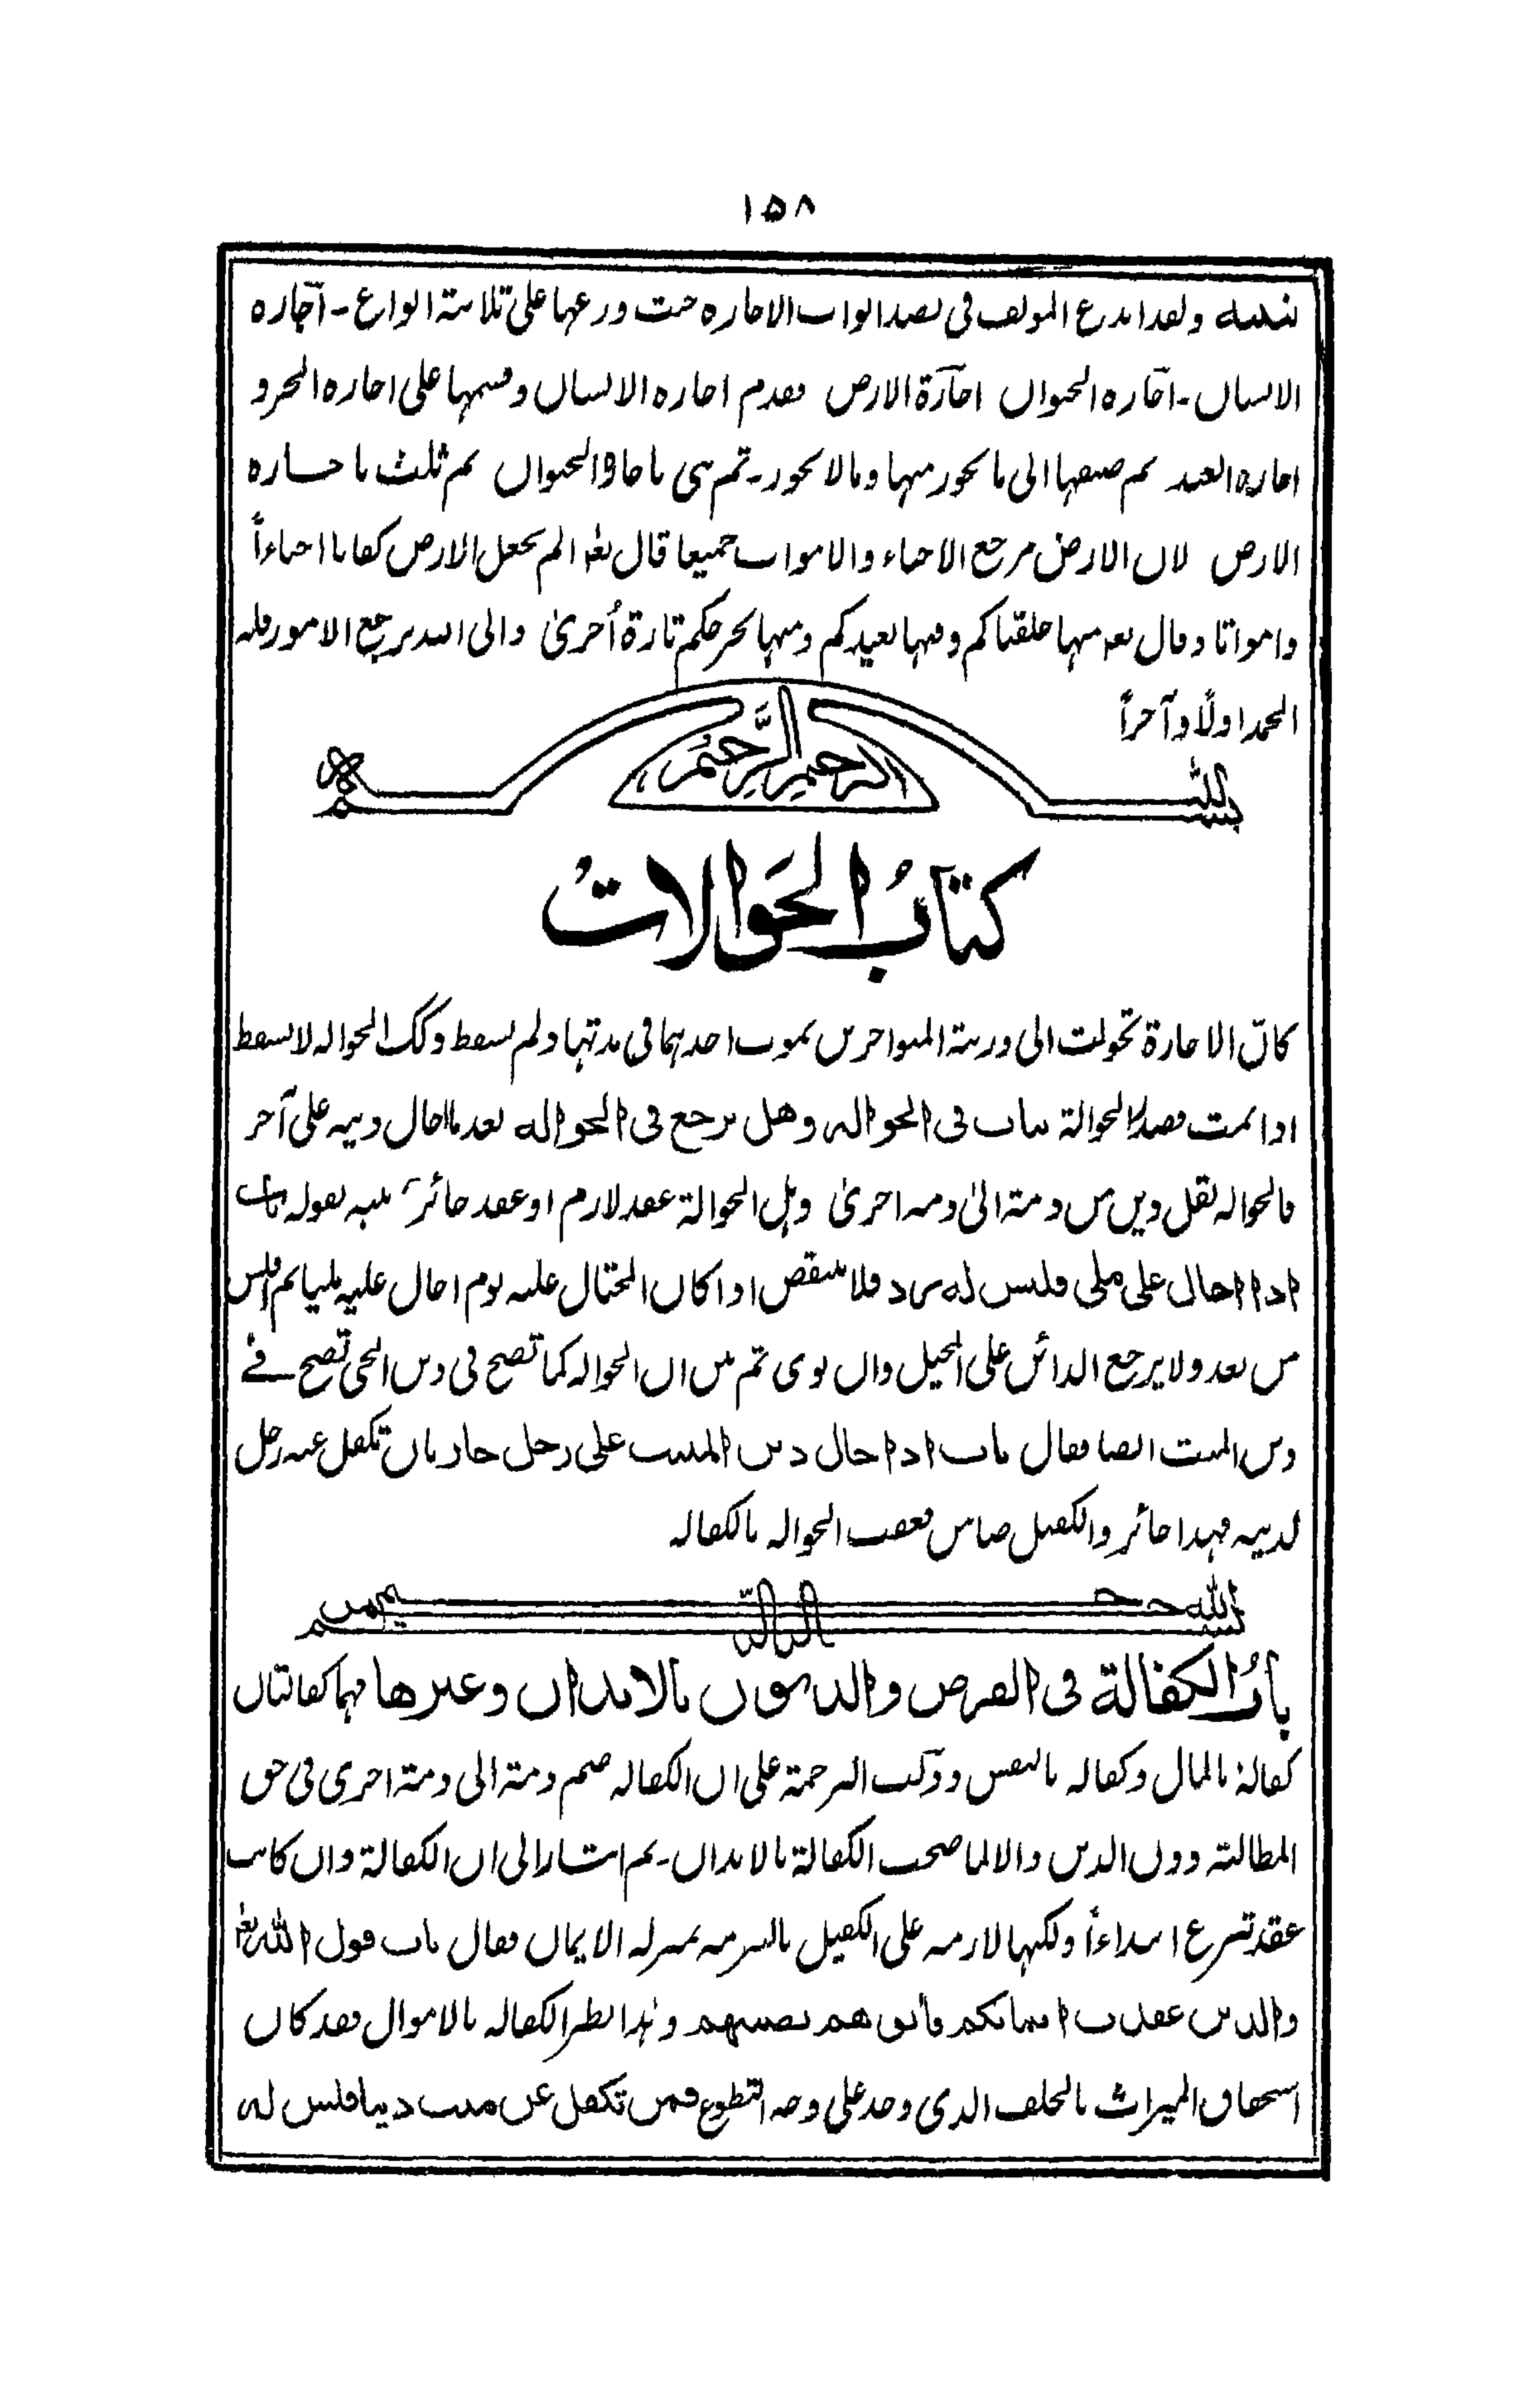 ١٥٨
تنبيه ولقد ابدع المؤلف فى نضد ابواب الاجارة حيث وزعها على ثلاثة انواع - اجارة
الانسان - اجارة الحيوان اجارة الارض فقدم اجارة الانسان وقسمها على اجارة الحر و
اجارة العبد ثم صنفها الى ما يجوز منها وما لا يجوز - ثم ثنى باجارة الحيوان ثم ثلث باجارة
الارض لان الارض مرجع الاحياء والاموات جميعا قال تعه الم نجعل الارض كفاتا احياءاً
وامواتا وقال تعه منها خلقناكم وفيها نعيدكم ومنها نخرجكم تارة أخرىٰ والى الله يرجع الامور فله
الحمد اولاً وآخراً
بسم الله الرحمن الرحيم
كتابُ الحَوالاتُ
كانّ الاجارة تحولت الى ورثة المتواجرين بموت احدهما فى مدتها ولم تسقط وكك الحوالة لا تسقط
اذا تمت فصدر الحوالة بباب فى الحوالة وهل يرجع فى الحوالة بعد ما احال دينه على آخر
فالحوالة نقل دين من ذمة الىٰ ذمة اخرىٰ وهل الحوالة عقد لازم او عقد جائز نبه بقوله باب
اذا احال على ملى فليس له رد فلا ينتقض اذا كان المحتال عليه يوم احال عليه مليا ثم افلس
من بعد ولا يرجع الدائن على المحيل وان توى ثم بين ان الحوالة كما تصح فى دين الحى تصح فے
دين الميت ايضا فقال باب اذا احال دين الميت على رجل جاز بان تكفل عنه رجل
لدينه فهذا جائز والكفيل ضامن فعقب الحوالة بالكفالة
بسم الله الرحمن الرحيم
بابُ الكفالة فى القرض والديون بالابدان وغيرها فهما كفالتان
كفالة بالمال وكفالة بالنفس ودلت الترجمة على ان الكفالة ضم ذمة الى ذمة اخرى فى حق
المطالبة دون الدين والا لما صحت الكفالة بالابدان - ثم اشار الى ان الكفالة وان كانت
عقد تبرع ابتداءاً ولكنها لازمة على الكفيل بالتزمه بمنزلة الايمان فقال باب قول الله تعه
والذين عقدت ايمانكم فأتوهم نصيبهم وهذا نظير الكفالة بالاموال فقد كان
استحقاق الميراث بالحلف الذى وجد على وجه التطوع فمن تكفل عن ميت دينا فليس له